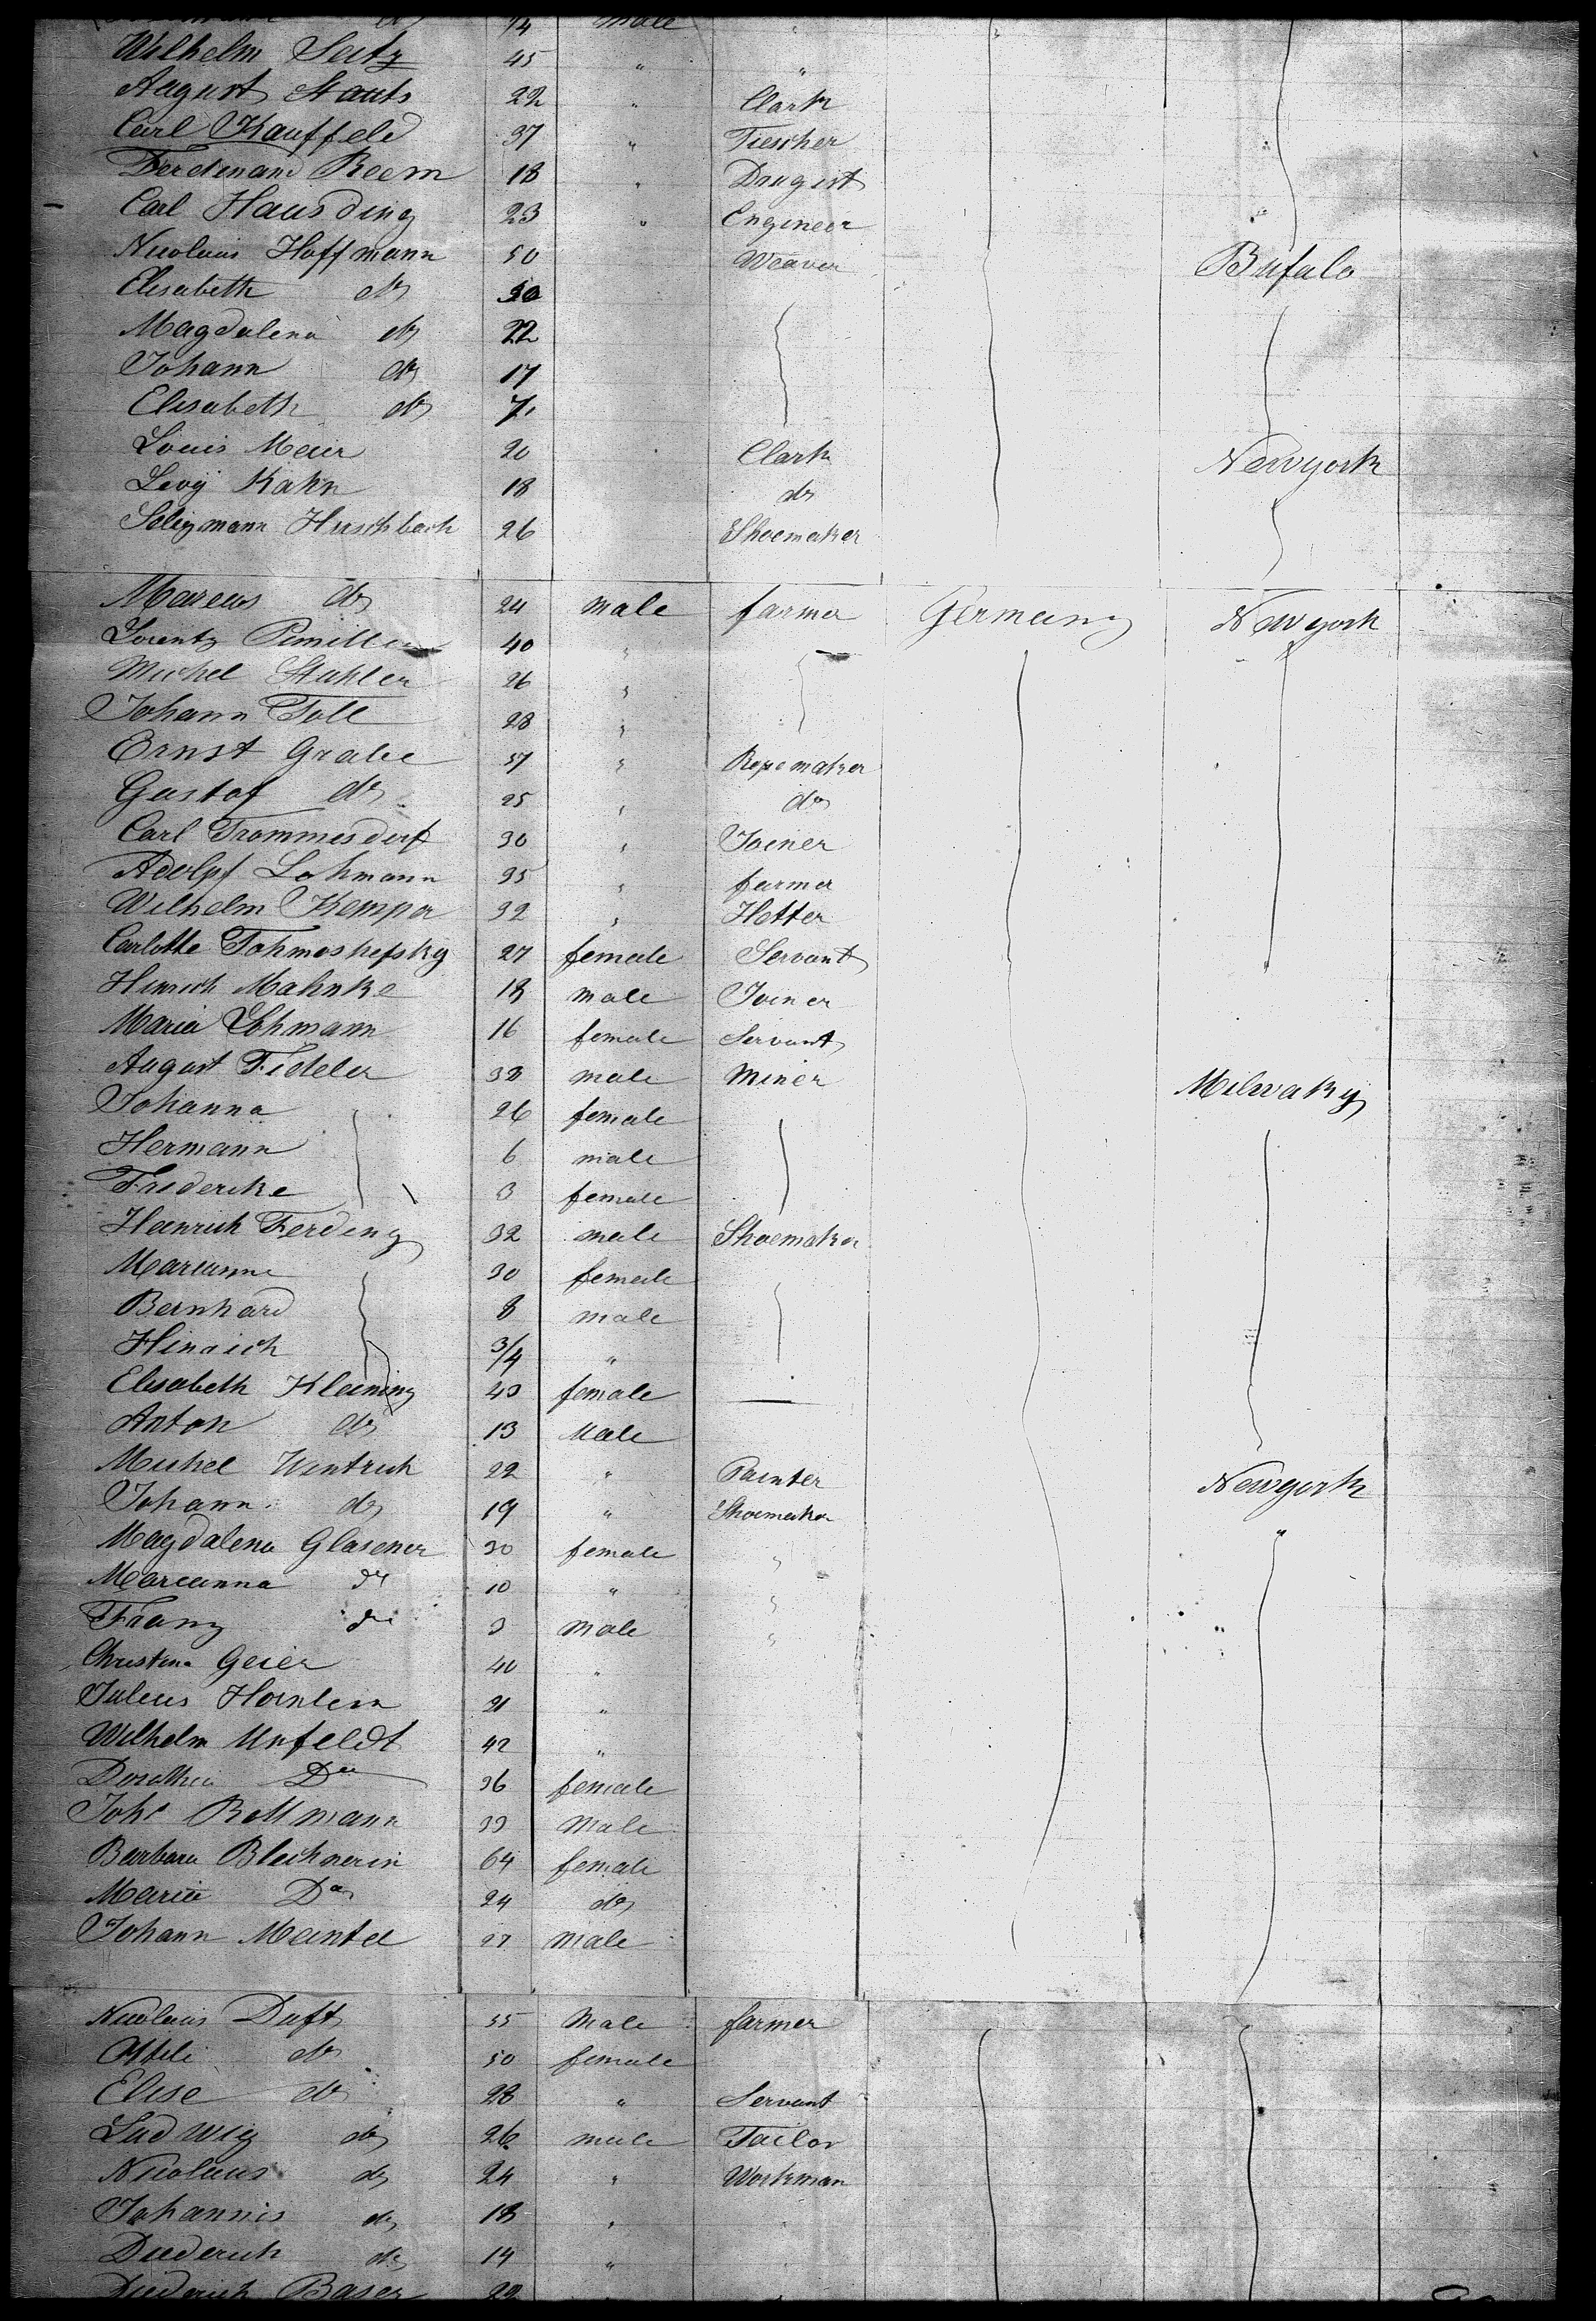 do 3/4 male
Wilhelm Seitz 45 " "
August Stauts 22 " Clark
Carl Kauffeld 37 " Tiescher
Ferdinand Reem 18 " Drugist
Carl Hausding 23 " Engineer
Nicolaus Hoffmann 50 Weaver Bufalo
Elisabeth do 50
Magdalena do 22
Johann do 17
Elisabeth do 7
Louis Meier 20 Clark Newyork
Levÿ Kahn 18 do
Seligmann Hirschbach 26 Shoemaker
Marcus do 24 male farmer Germany Newyork
Lorentz 40 "
Michel Stahler 26 "
Johann Toll 28 "
Ernst Grabe 57 " Ropemaker
Gustof do 25 " do
Carl Trommesdorf 30 " Joiner
Adolpf Lohmann 35 " farmer
Wilhelm Kemper 32 " Hotter
Carlotte 27 female Servant
Hinrich Mahnke 18 male Joiner
Maria Lohmann 16 female Servant
August Fideler 38 male Miner Milwaky
Johanna 26 female
Hermann 6 male
Friderike 3 female
Heinrich Ferding 32 male Shoemaker
Marianne 30 female
Bernhard 8 male
Hinrich 3/4 "
Elisabeth Kleining 43 female
Anton do 13 Male
Michel Wintrich 22 " Painter Newyork
Johann do 19 " Shoemaker "
Magdalena Glasener 30 female "
Marianna do 10 " "
Franz do 9 Male "
Christina Geier 40 "
Julius Hornlein 21 "
Wilhelm Unfeldt 42 "
Dorothea Do 36 female
Johs Rollmann 33 Male
Barbara Blechnerin 64 female
Maria Do 24 do
Johann Mantel 27 Male
Nicolaus Duft 55 Male farmer
Ottili do 50 female
Elise do 28 " Servant
Ludwig do 26 male Tailor
Nicolaus do 24 " Workman
Johannis do 18 "
Diederich do 14 "
Diederich Baser 22